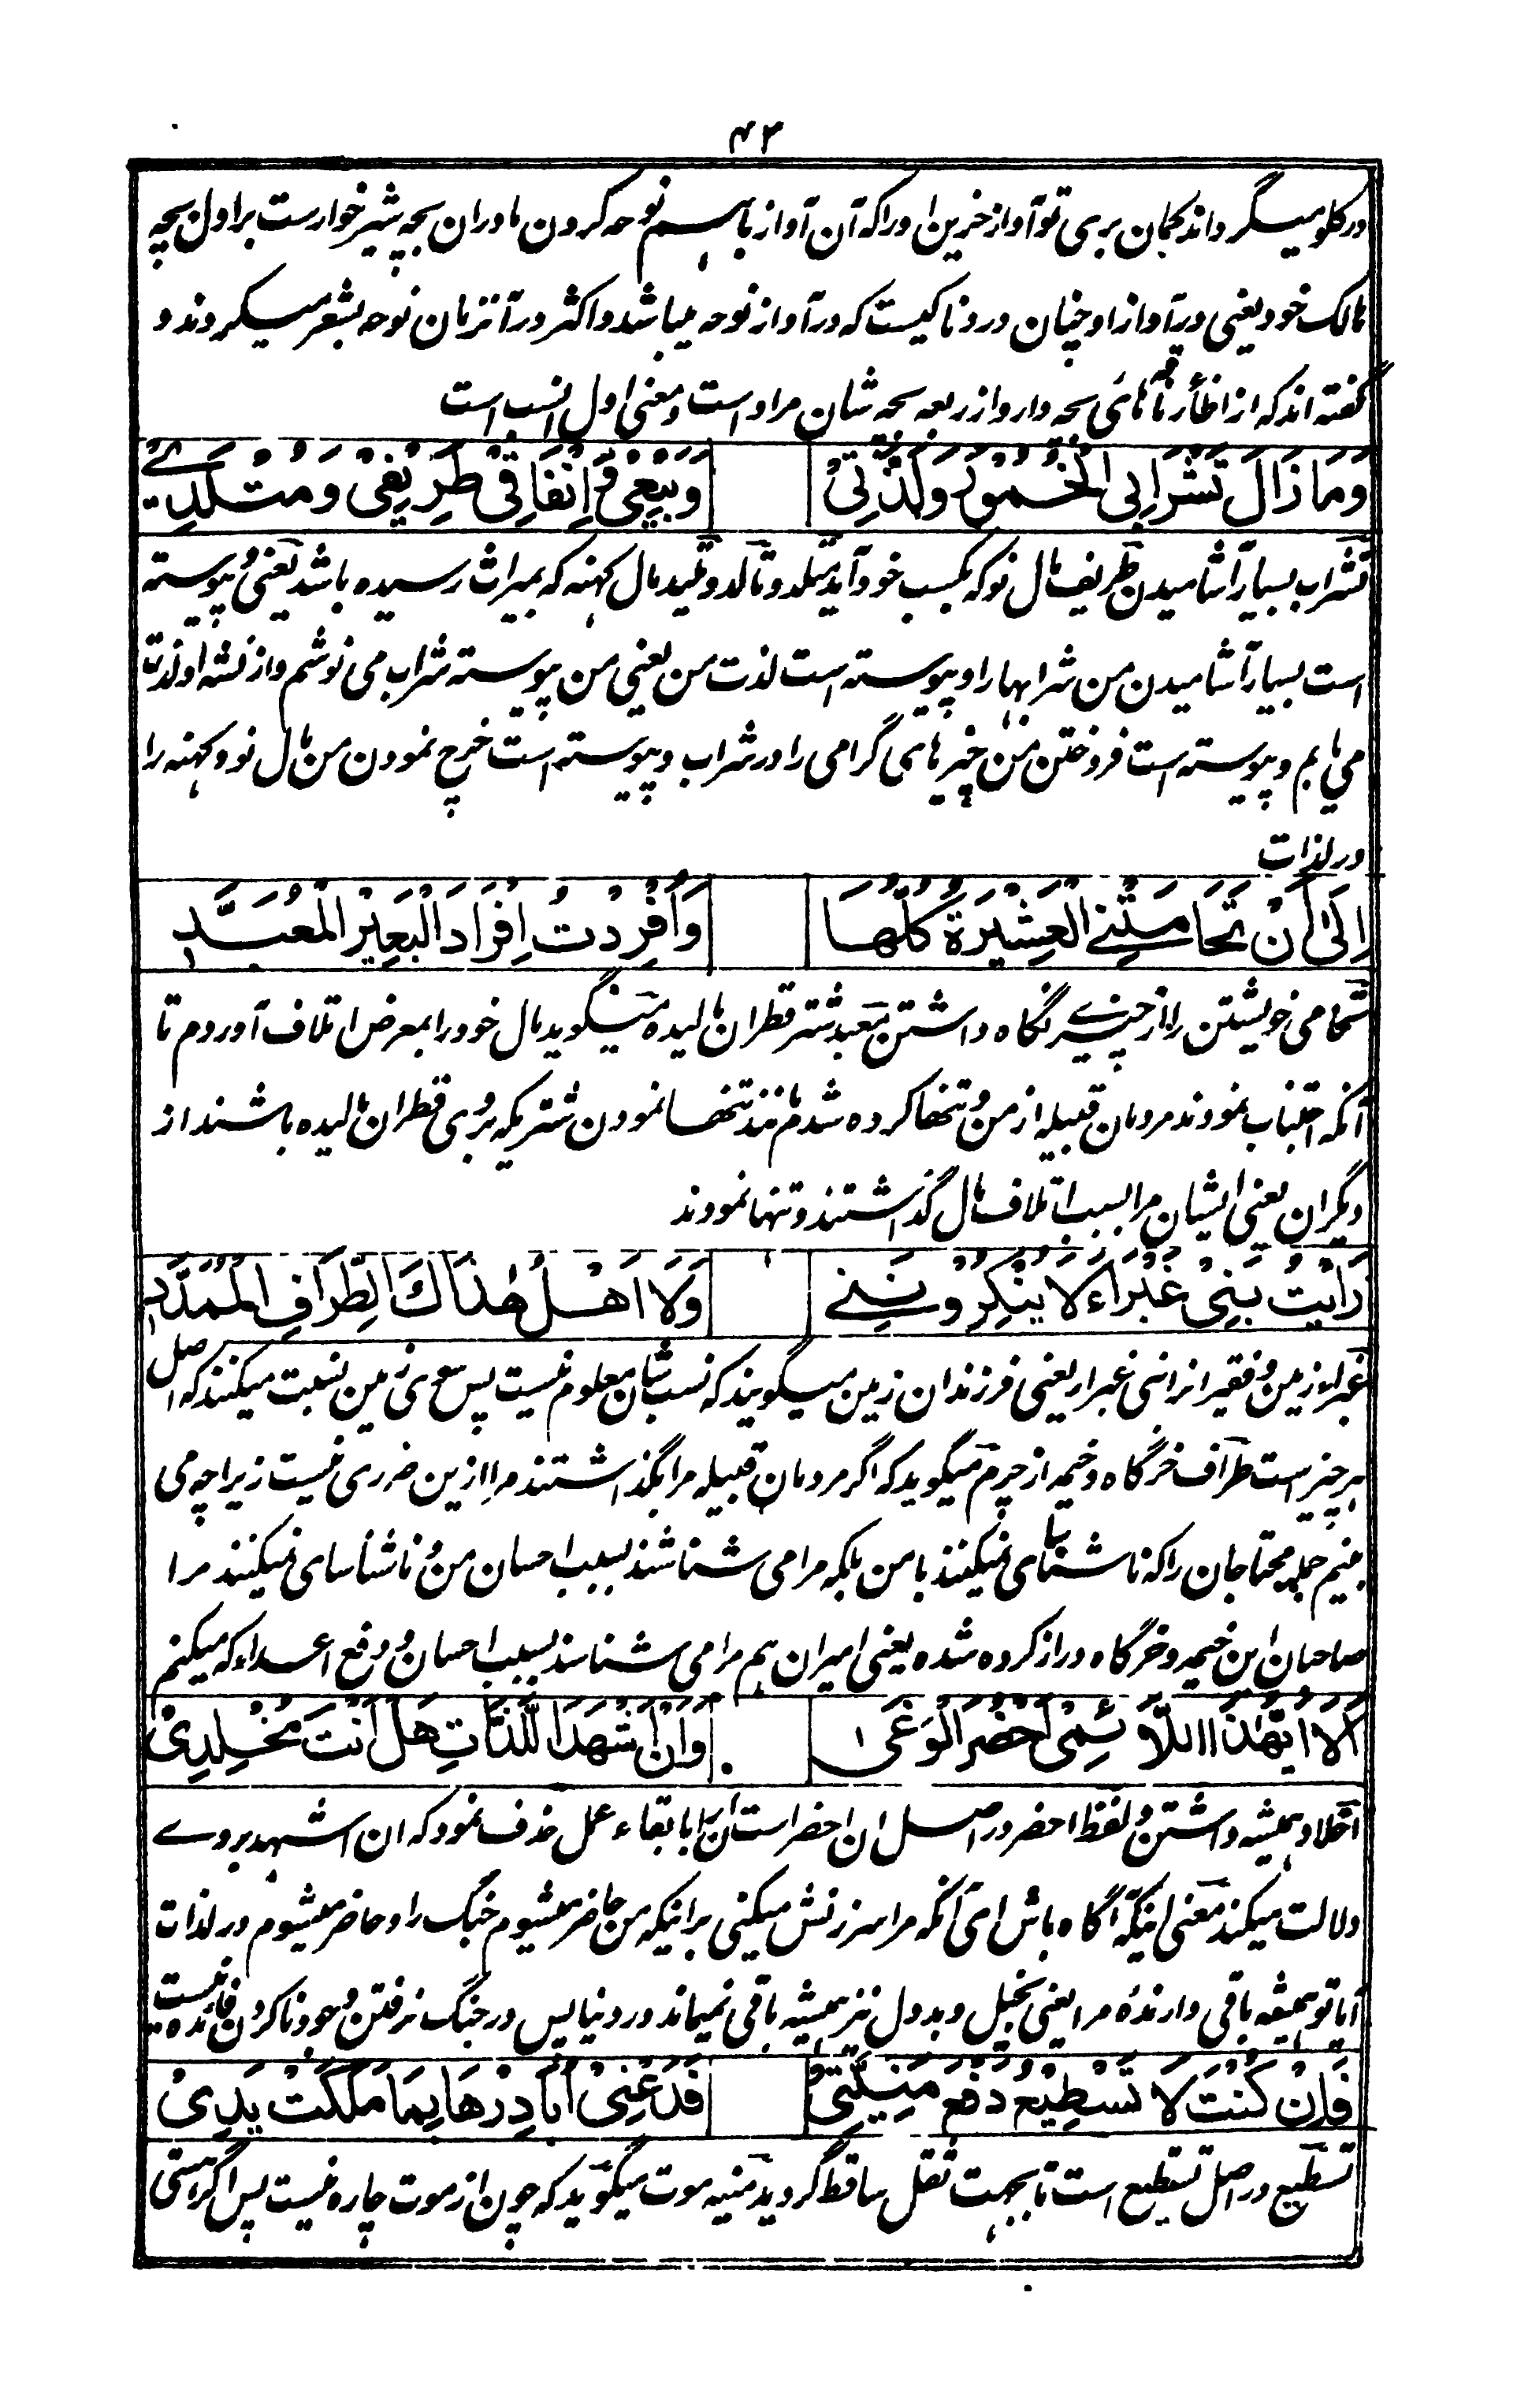 ۴۳
در گلو میگرداند گمان بری تو آواز حزین او را که آن آواز باهم نوحه کردن مادران بچه شیرخوارست بر اول بچه
هالک خود یعنی در آواز او چنان دردناکیست که در آواز نوحه میباشد و اکثر در آنزمان نوحه بشعر میکردند و
گفته اند که از اظأر ناقه های بچه دار و از ربعه بچه شان مراد است و معنی اول انسب است
وَمَا زَالَ تَشْرَابِی الْخُمُوْرَ وَلَذَّتِیْ وَبَیْعِیْ وَ اِنْفَاقِیْ طَرِیْفِیْ وَمُتْلَدِیْ
تشراب بسیار آشامیدن طریف مال نو که بکسب خود آید متلد و تالد و تلید مال کهنه که بمیراث رسیده باشد یعنی و پیوسته
است بسیار آشامیدن من شرابها را و پیوسته است لذت من یعنی من پیوسته شراب می نوشم و از نشه او لذت
می یابم و پیوسته است فروختن من چیزهای گرامی را در شراب و پیوسته است خرج نمودن من مال نو و کهنه را
در لذات
اِلٰی اَنْ تَحَامَتْنِے الْعَشِیْرَةُ کُلُّهَا وَاُفْرِدْتُ اِفْرَادَ الْبَعِیْرِ الْمُعَبَّدِ
تحامی خویشتن را از چیزے نگاه داشتن معبد شتر قطران مالیده میگوید مال خود را بمعرض اتلاف آوردم تا
آنکه اجتناب نمودند مردمان قبیله از من و تنها کرده شدم مانند تنها نمودن شتریکه بروی قطران مالیده باشند از
دیگران یعنی ایشان مرا بسبب اتلاف مال گذاشتند و تنها نمودند
رَاَیْتُ بَنِیْ غَبْرَاءَ لَا یُنْکِرُوْنَنِے وَلَا اَهْلُ هٰذَاكَ الطِّرَافِ الْمُمَدَّدِ
غبراء زمین و فقیرانرا بنی غبرا یعنی فرزندان زمین میگویند که نسب شان معلوم نیست پس بسوی زمین نسبت میکنند که اصل
هر چیز است طراف خرگاه و خیمه از چرم میگوید که اگر مردمان قبیله مرا بگذاشتند مرا ازین ضرری نیست زیرا چه می
بینم جمله محتاجان را که ناشناسای نمیکنند با من بلکه مرا می شناسند بسبب احسان من و ناشناسای نمیکنند مرا
صاحبان این خیمه و خرگاه دراز کرده شده یعنی امیران هم مرا می شناسند بسبب احسان و دفع اعداء که میکنم
اَلَا اَیُّهٰذَا اللَّائِمِیْ اَحْضُرَ الْوَغٰی وَاَنْ اَشْهَدَ اللَّذَّاتِ هَلْ اَنْتَ مُخْلِدِیْ
اخلاد همیشه داشتن و لفظ احضر در اصل ان احضر است ان را با بقاء عمل حذف نمود که ان اشهد بروے
دلالت میکند معنی اینکه آگاه باش ای آنکه مرا سرزنش میکنی برا نیکه من حاضر میشوم جنگ را و حاضر میشوم در لذات
آیا تو همیشه باقی دارنده مرا یعنی بخیل و بددل نیز همیشه باقی نمیماند در دنیا پس در جنگ نرفتن و جود نا کردن فائده نیست
فَاِنْ کُنْتَ لَا تَسْطِیْعُ دَفْعَ مَنِیَّتِیْ فَدَعْنِیْ اُبَادِرْهَا بِمَا مَلَکَتْ یَدِیْ
تسطیع در اصل تستطیع است تا بجهت ثقل ساقط گردید منیه موت میگوید که چون از موت چاره نیست پس اگر هستی